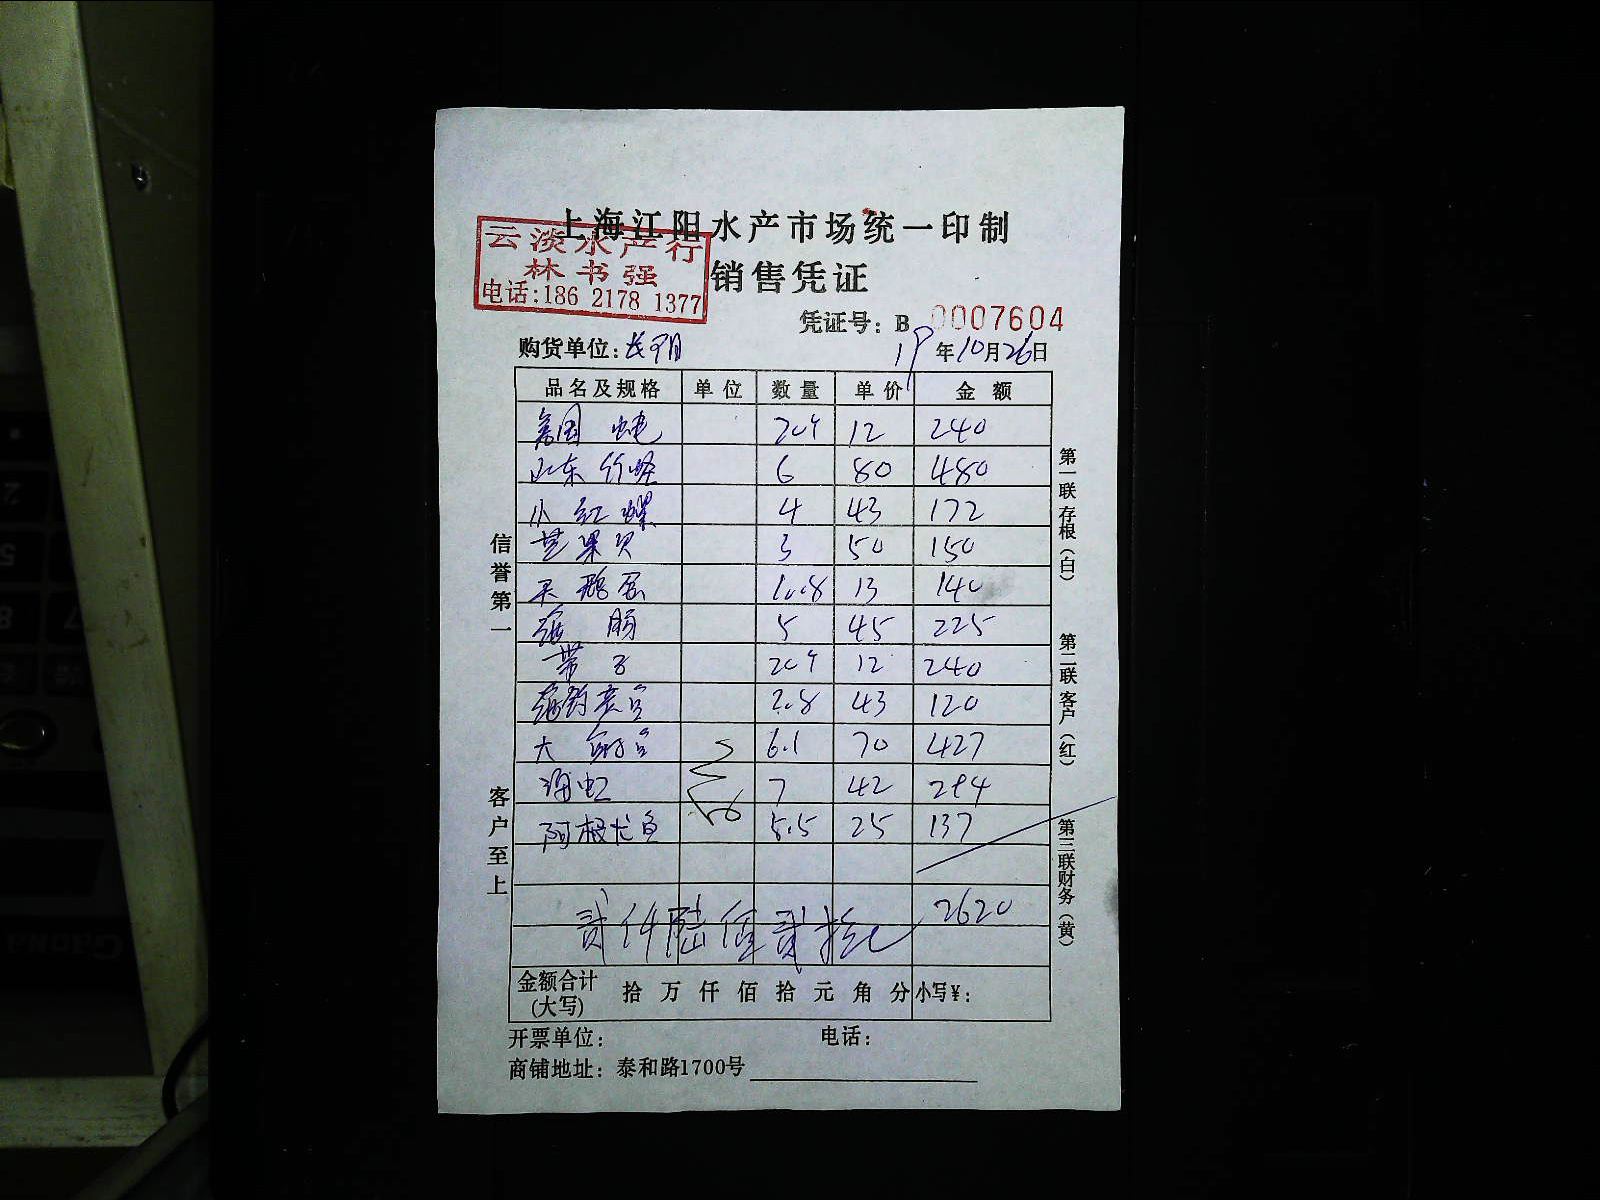 上海江阳水产市场统一印制
云淡水产行
林书强
电话:186 2178 1377
销售凭证
凭证号: B 0007604
购货单位:
19年10月26日
品名及规格 单位 数量 单价 金额
20个 12 240
山东竹蛏 6 80 480
小红螺 4 43 172
芒果贝 3 50 150
天鹅蛋 10.8 13 140
海肠 5 45 225
带子 20个 12 240
2.8 43 120
大 6.1 70 427
海虹 7 42 294
阿根尤鱼 5.5 25 137
贰仟陆佰贰拾 2620
金额合计(大写) 拾 万 仟 佰 拾 元 角 分 小写¥:
开票单位: 电话:
商铺地址: 泰和路1700号
信誉第一
客户至上
第一联存根(白)
第二联客户(红)
第三联财务(黄)